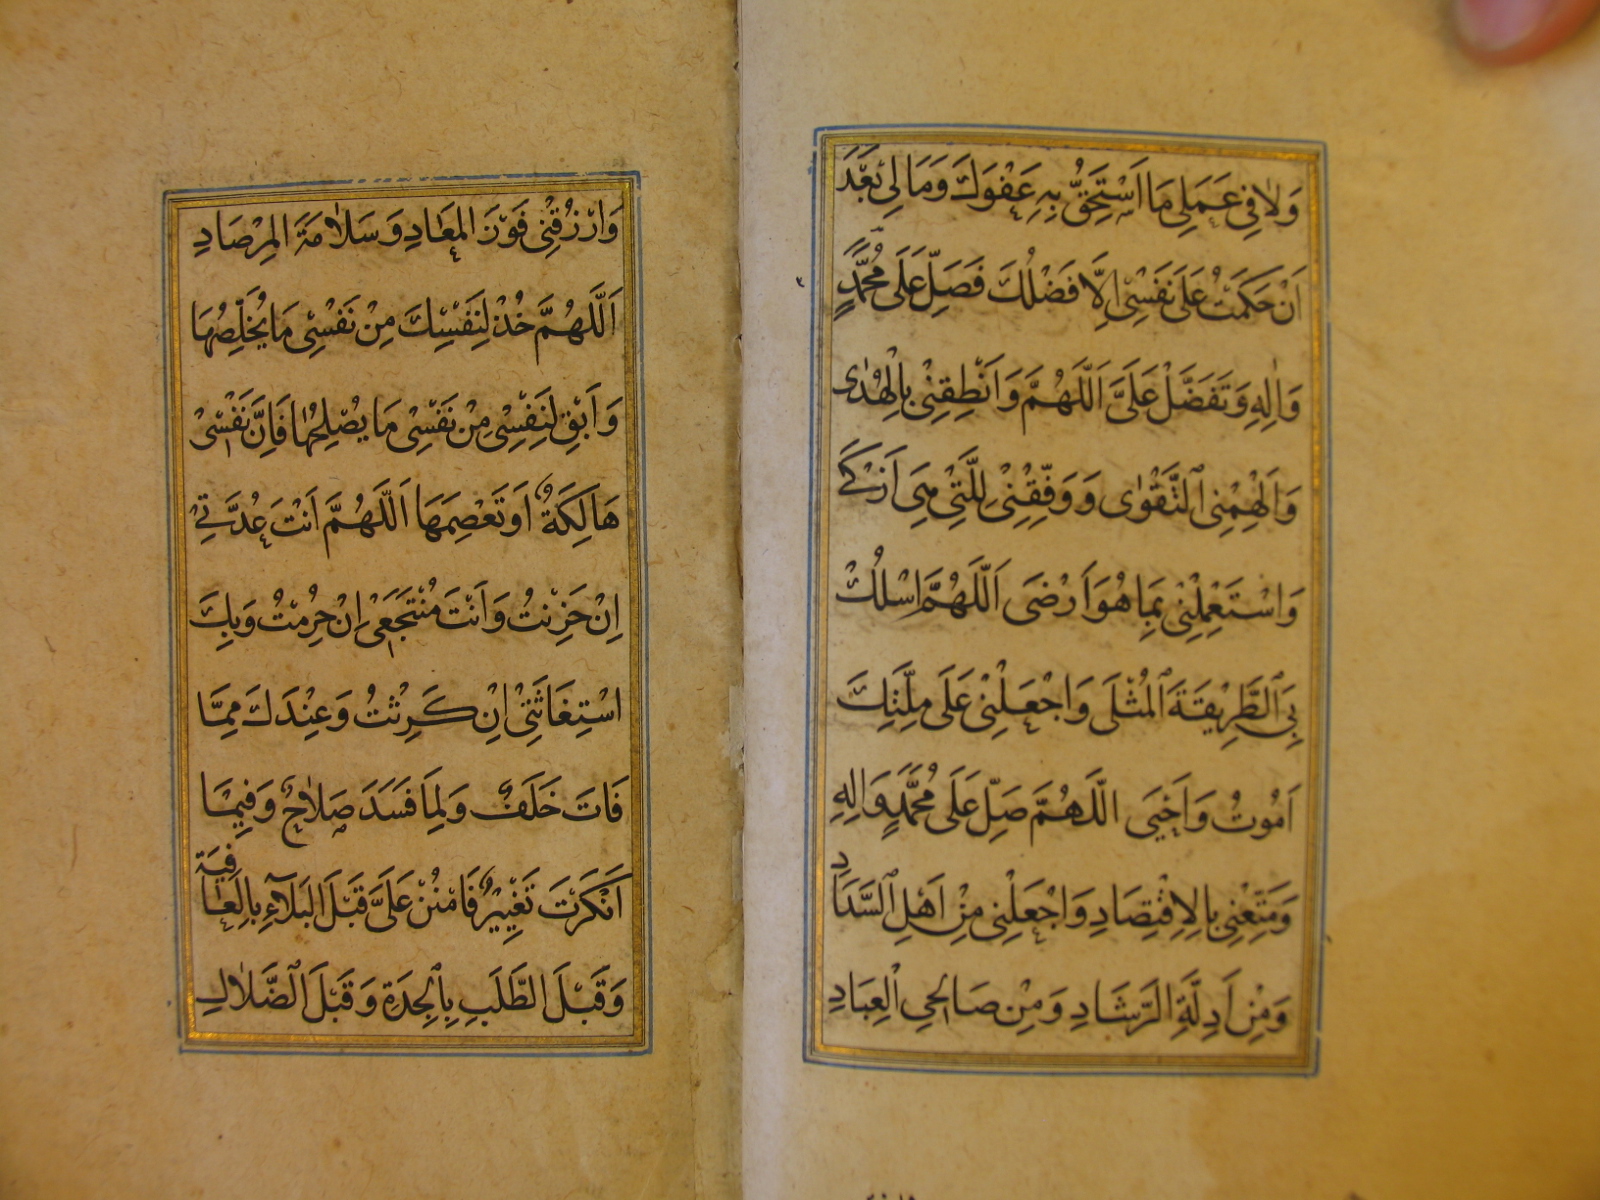 وَلَا فِي عَمَلِي مَا اَسْتَحِقُّ بِهِ عَفْوَكَ وَمَا لِي بَعْدَ
اَنْ حَكَمْتُ عَلَى نَفْسِي اِلَّا فَضْلُكَ فَصَلِّ عَلَى مُحَمَّدٍ
وَاٰلِهِ وَتَفَضَّلْ عَلَيَّ اَللَّهُمَّ وَاَنْطِقْنِي بِالْهُدٰى
وَاَلْهِمْنِي التَّقْوٰى وَوَفِّقْنِي لِلَّتِي هِيَ اَزْكٰى
وَاسْتَعْمِلْنِي بِمَا هُوَ اَرْضَى اَللَّهُمَّ اسْلُكْ
بِيَ الطَّرِيقَةَ الْمُثْلَى وَاجْعَلْنِي عَلَى مِلَّتِكَ
اَمُوتُ وَاَحْيَى اللَّهُمَّ صَلِّ عَلَى مُحَمَّدٍ وَاٰلِهِ
وَمَتِّعْنِي بِالْاِقْتِصَادِ وَاجْعَلْنِي مِنْ اَهْلِ السَّدَادِ
وَمِنْ اَدِلَّةِ الرَّشَادِ وَمِنْ صَالِحِي الْعِبَادِ
وَارْزُقْنِي فَوْزَ الْمَعَادِ وَسَلَامَةَ الْمِرْصَادِ
اَللَّهُمَّ خُذْ لِنَفْسِكَ مِنْ نَفْسِي مَا يُخَلِّصُهَا
وَاَبْقِ لِنَفْسِي مِنْ نَفْسِي مَا يُصْلِحُهَا فَاِنَّ نَفْسِي
هَالِكَةٌ اَوْ تَعْصِمَهَا اَللَّهُمَّ اَنْتَ عُدَّتِي
اِنْ حَزِنْتُ وَاَنْتَ مُنْتَجَعِي اِنْ حُرِمْتُ وَبِكَ
اسْتِغَاثَتِي اِنْ كَرِثْتُ وَعِنْدَكَ مِمَّا
فَاتَ خَلَفٌ وَلِمَا فَسَدَ صَلَاحٌ وَفِيمَا
اَنْكَرْتَ تَغْيِيرٌ فَامْنُنْ عَلَيَّ قَبْلَ الْبَلَاءِ بِالْعَافِيَةِ
وَقَبْلَ الطَّلَبِ بِالْجِدَةِ وَقَبْلَ الضَّلَالِ